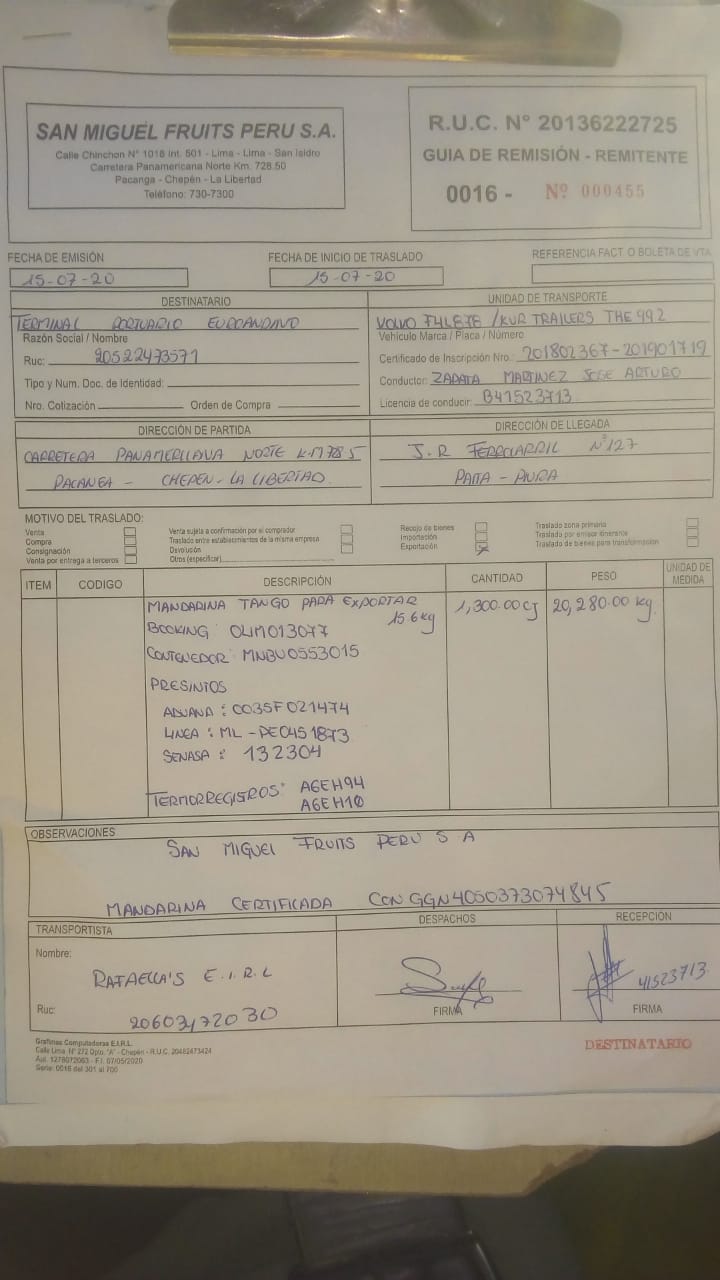 SAN MIGUEL FRUITS PERU S.A.
Calle Chinchon N° 1018 Int. 501 - Lima - Lima - San Isidro
Carretera Panamericana Norte Km. 728.50
Pacanga - Chepén - La Libertad
Teléfono: 730-7300
R.U.C. N° 20136222725
GUIA DE REMISIÓN - REMITENTE
0016 - Nº 000455
FECHA DE EMISIÓN
15-07-20
FECHA DE INICIO DE TRASLADO
15-07-20
REFERENCIA FACT. O BOLETA DE VTA
DESTINATARIO
TERMINAL PORTUARIO EUROANDINO
Razón Social / Nombre
Ruc: 20522473571
Tipo y Num. Doc. de Identidad:
Nro. Cotización Orden de Compra
UNIDAD DE TRANSPORTE
VOLVO /KUR TRAILERS THE 992
Vehículo Marca / Placa / Número
Certificado de Inscripción Nro.: 201802367-201901719
Conductor: ZAPATA MARTINEZ JOSE ARTURO
Licencia de conducir: B41523713
DIRECCIÓN DE PARTIDA
CARRETERA PANAMERICANA NORTE
PACANGA - CHEPEN - LA LIBERTAD
DIRECCIÓN DE LLEGADA
J.R FERROCARRIL N°127
PAITA - PIURA
MOTIVO DEL TRASLADO:
Venta
Compra
Consignación
Venta por entrega a terceros
Venta sujeta a confirmación por el comprador
Traslado entre establecimientos de la misma empresa
Devolución
Otros (especificar)
Recojo de bienes
Importación
Exportación
Traslado zona primaria
Traslado por emisor itinerante
Traslado de bienes para transformación
ITEM CODIGO DESCRIPCIÓN CANTIDAD PESO UNIDAD DE MEDIDA
MANDARINA TANGO PARA EXPORTAR 1,300.00 CJ 20,280.00 kg.
15.6 kg
BOOKING OLIM013077
CONTENEDOR MNBU0553015
PRESINTOS
ADUANA : 0035F021474
LINEA : ML - PE0451873
SENASA : 132304
TERMORREGISTROS: A6EH94
A6EH10
OBSERVACIONES
SAN MIGUEL FRUITS PERU S A
MANDARINA CERTIFICADA CON GGN 4050373074845
TRANSPORTISTA
Nombre:
RAFAELLA'S E.I.R.L
Ruc: 20603472030
DESPACHOS
FIRMA
RECEPCIÓN
41523713
FIRMA
Grafimas Computadoras E.I.R.L.
Calle Lima N° 272 Dpto. "A" - Chepén - R.U.C. 20482473424
Aut. 1278072063 - F.I. 07/05/2020
Serie: 0016 del 301 al 700
DESTINATARIO